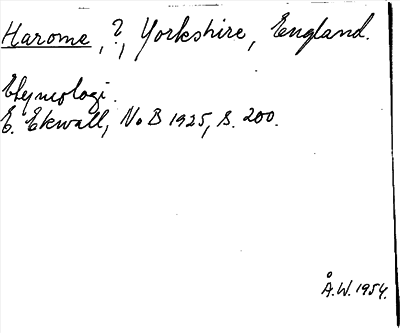 Harome, ?, Yorkshire, England.
Etymologi.
E. Ekwall, NoB 1925, s. 200.
Å.W. 1954.